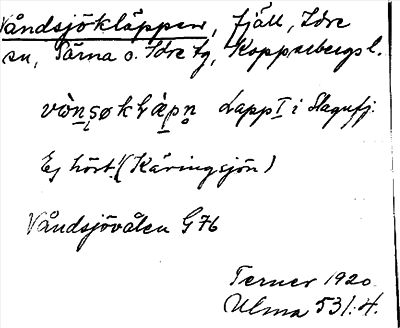 Våndsjökläppen, fjäll, Idre
sn, Särna o. Idre tg, Kopparbergs l.
Lapp I i Slagufj.
Ej hört! (Käringsjön)
Våndsjövålen G76
Terner 1920.
Ulma 531:4.